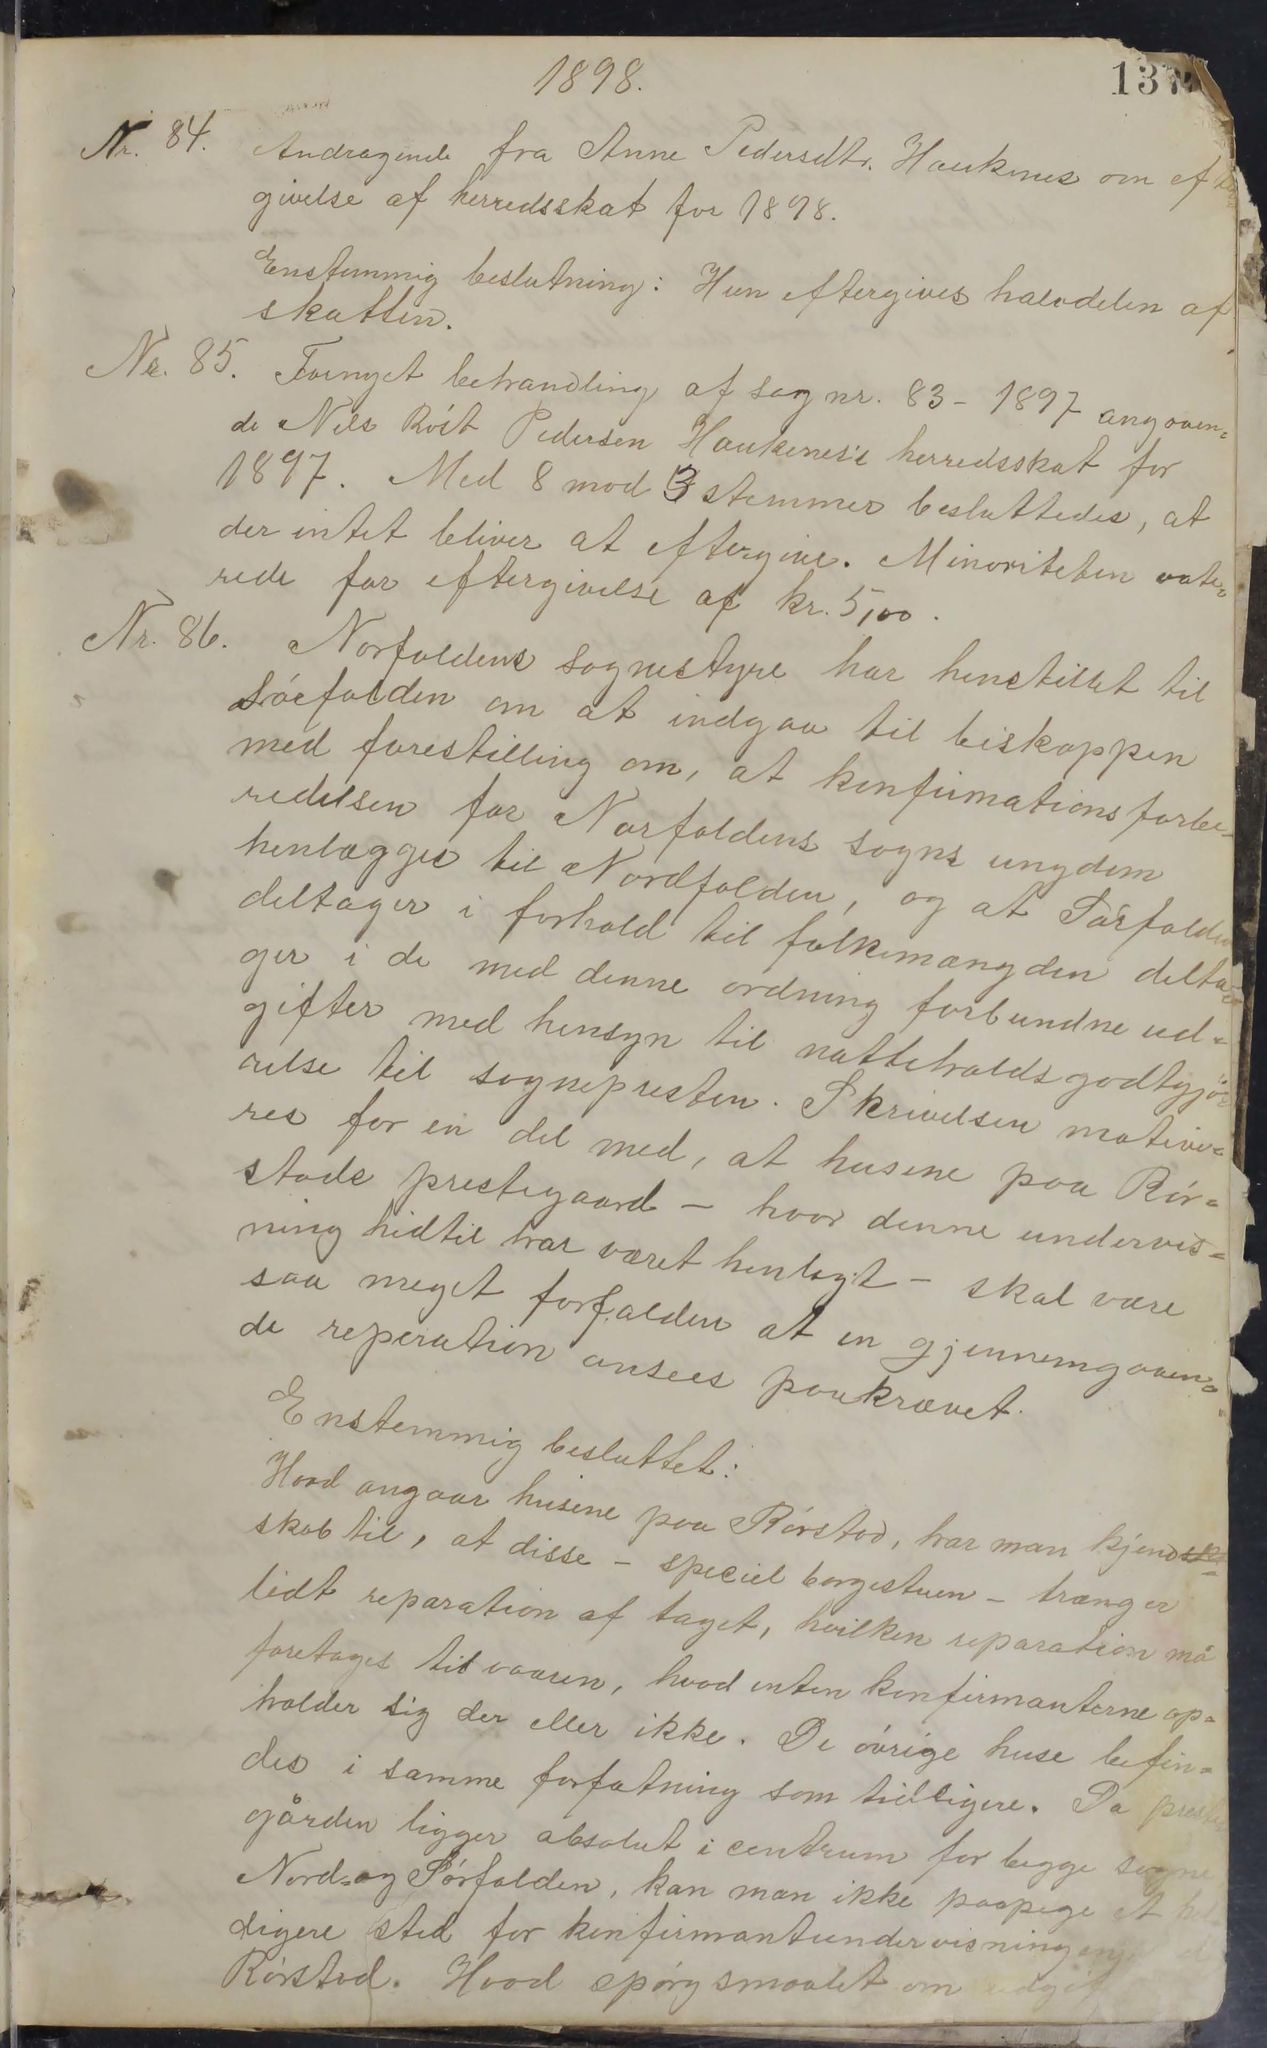 1898.
137
Nr. 84. Andragende fra Anne Pedersdtr. Haukenes om efter
givelse af herredsskat for 1898.
Enstemmig beslutning: Hun eftergives halvdelen af
skatten.
Nr. 85. Fornyet behandling af sag nr. 83 - 1897 angaaen=
de Nils Røst Pedersen Haukenes's herredsskat for
1897. Med 8 mod 3 stemmer besluttedes, at
der intet bliver at eftergive. Minoriteten vote=
rede for eftergivelse af kr. 5,00.
Nr. 86. Norfoldens sognestyre har henstillet til
Sørfolden om at indgaa til biskoppen
med forestilling om, at konfirmationsforbe=
redelsen for Norfoldens sogns ungdom
henlægges til Nordfolden, og at Sørfolden
deltager i forhold til folkemængden delta=
ger i de med denne ordning forbundne ud=
gifter med hensyn til natteholdsgodtgjør
relse til sognepresten. Skrivelsen motive=
res for en del med, at husene paa Rør=
stads prestegaard - hvor denne undervis=
ning hidtil har været henlagt - skal være
saa meget forfalden at en gjennemgaaen=
de reperation ansees paakrævet.
Enstemmig besluttet:
Hvad angaar husene paa Rørstad, har man kjend=
skab til, at disse - speciel borgestuen - trænger
lidt reparation af taget, hvilken reparation må
foretages til vaaren, hvad enten konfirmanterne op=
holder sig der eller ikke. De øvrige huse befin=
des i samme forfatning som tidligere. Da preste
gården ligger absolut i centrum for begge sogne
Nord= og Sørfolden, kan man ikke paapege et hel
digere sted for konfirmantundervisningen
Rørstad. Hvad spørgsmaalet om udgif